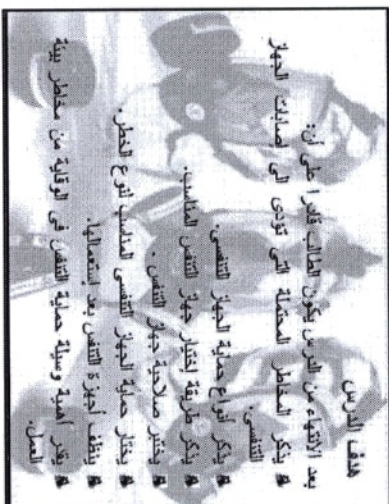 هدف الدرس
بعد الانتهاء من الدرس يكون الطالب قادرا على أن:
يذكر المخاطر المحتملة التى تؤدى الى اصابات الجهاز
التنفسى.
يذكر أنواع حماية الجهاز التنفسى.
يذكر طريقة إختيار جهاز التنفس المناسب.
يختبر صلاحية جهاز التنفس.
يختار حماية الجهاز التنفسى المناسب لنوع الخطر.
ينظف أجهزة التنفس بعد إستعمالها.
يقدر أهمية وسيلة حماية التنفس فى الوقاية من مخاطر بيئة
العمل.